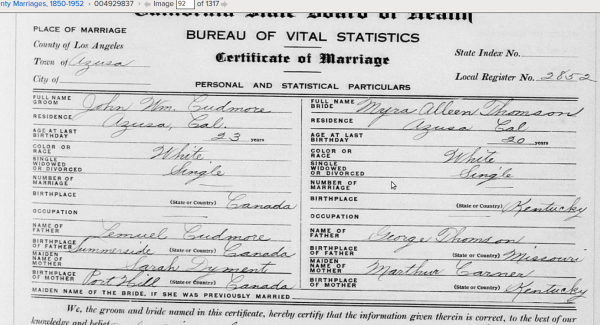 nty Marriages, 1850-1952 004929837 Image 92 of 1317
California State Board of Health
PLACE OF MARRIAGE
BUREAU OF VITAL STATISTICS
County of Los Angeles
Certificate of Marriage
State Index No.
Town of Azusa
City of
Local Register No. 2852
PERSONAL AND STATISTICAL PARTICULARS
FULL NAME GROOM John Wm. Cudmore
RESIDENCE Azusa, Cal.
AGE AT LAST BIRTHDAY 23 years
COLOR OR RACE White
SINGLE WIDOWED OR DIVORCED Single
NUMBER OF MARRIAGE
BIRTHPLACE (State or Country) Canada
OCCUPATION
NAME OF FATHER Lemuel Cudmore
BIRTHPLACE OF FATHER Summerside (State or Country) Canada
MAIDEN NAME OF MOTHER Sarah Dyment
BIRTHPLACE OF MOTHER Port Hill (State or Country) Canada
FULL NAME BRIDE Myra Alleen Thomson
RESIDENCE Azusa Cal
AGE AT LAST BIRTHDAY 20 years
COLOR OR RACE White
SINGLE WIDOWED OR DIVORCED Single
NUMBER OF MARRIAGE
BIRTHPLACE (State or Country) Kentucky
OCCUPATION
NAME OF FATHER George Thomson
BIRTHPLACE OF FATHER (State or Country) Missouri
MAIDEN NAME OF MOTHER Carner
BIRTHPLACE OF MOTHER (State or Country) Kentucky
MAIDEN NAME OF THE BRIDE, IF SHE WAS PREVIOUSLY MARRIED
We, the groom and bride named in this certificate, hereby certify that the information given therein is correct, to the best of our
knowledge and belief